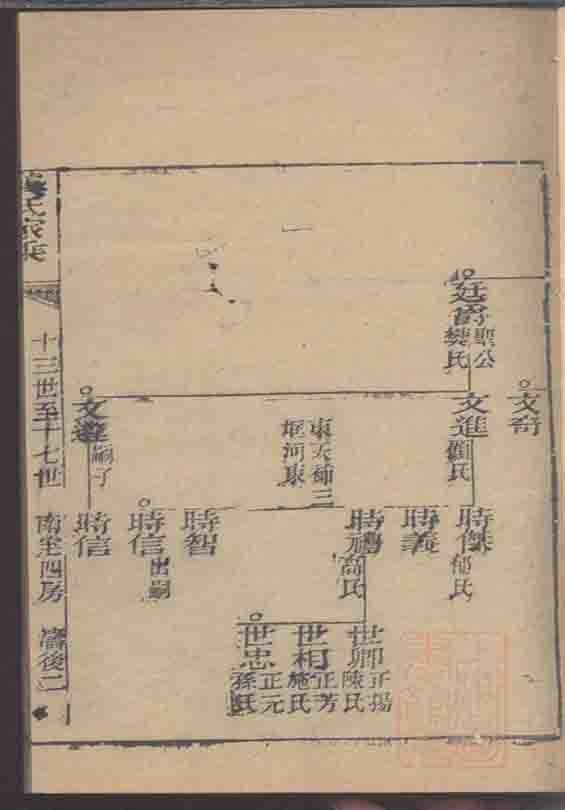 廷爵 聖公 樊氏
文奇
文進 顧氏
東天莆三
堰河東
文進 嗣子
時傑 郁氏
時義
時禮 高氏
時智
時信 出嗣
時信
世卿 正揚 陳氏
世相 正芳 施氏
世忠 正元 孫氏
氏家乘
十三世至十七世
南宅四房
濤後二